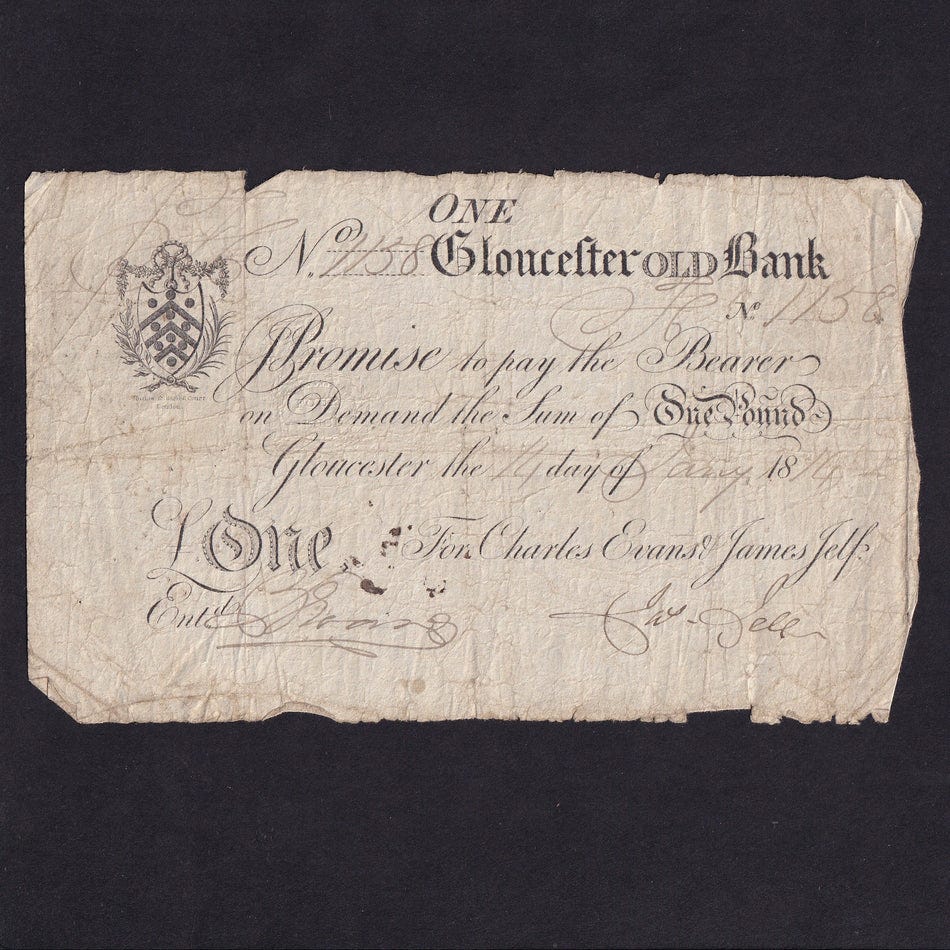 ONE
No. 1158 Gloucester OLD Bank
No 1158
I Promise to pay the Bearer
on Demand the Sum of One Pound
Gloucester the 14 day of Jany. 18
£ One For Charles Evans & James Jelf.
Entd.
Jas. Jelf